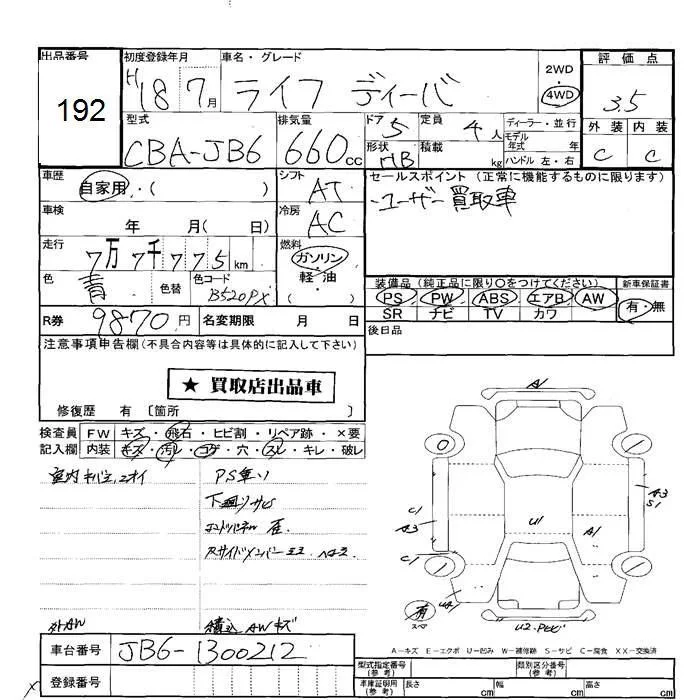 出品番号
192
初度登録年月
H18 7月
車名・グレード
ライフ ディーバ
2WD
・
4WD
評価点
3.5
外装 内装
C C
型式
CBA-JB6
排気量
660cc
ドア 5
定員 4人
形状 HB
積載 kg
ディーラー・並行
モデル年式 年
ハンドル 左・右
車歴
自家用・( )
シフト
AT
セールスポイント (正常に機能するものに限ります)
・ユーザー買取車
車検
年 月(日)
冷房
AC
走行
7万7千775km
燃料
ガソリン・軽・油
( )
色
青
色替
色コード
B520PX
装備品 (純正品に限り○をつけてください)
PS PW ABS エアB AW
SR ナビ TV カワ
新車保証書
有・無
R券
9870円
名変期限 月 日
後日品
注意事項申告欄(不具合内容等は具体的に記入して下さい)
★ 買取店出品車
修復歴 有 〔箇所 〕
検査員記入欄
FW キズ・飛石・ヒビ割・リペア跡・×要
内装 キズ・汚レ・コゲ・穴・スレ・キレ・破レ
PS重い
下廻りサビ
A1
O
A3
S1
C1
A3
C1
U1
A1
有
スペア
外AW
積込AWキズ
A−キズ E−エクボ U−凹み W−補修跡 S−サビ C−腐食 XX−交換済
車台番号
JB6-1300212
登録番号
型式指定番号(参考)
類別区分番号(参考)
車庫証明用(参考)
長さ cm 幅 cm 高さ cm